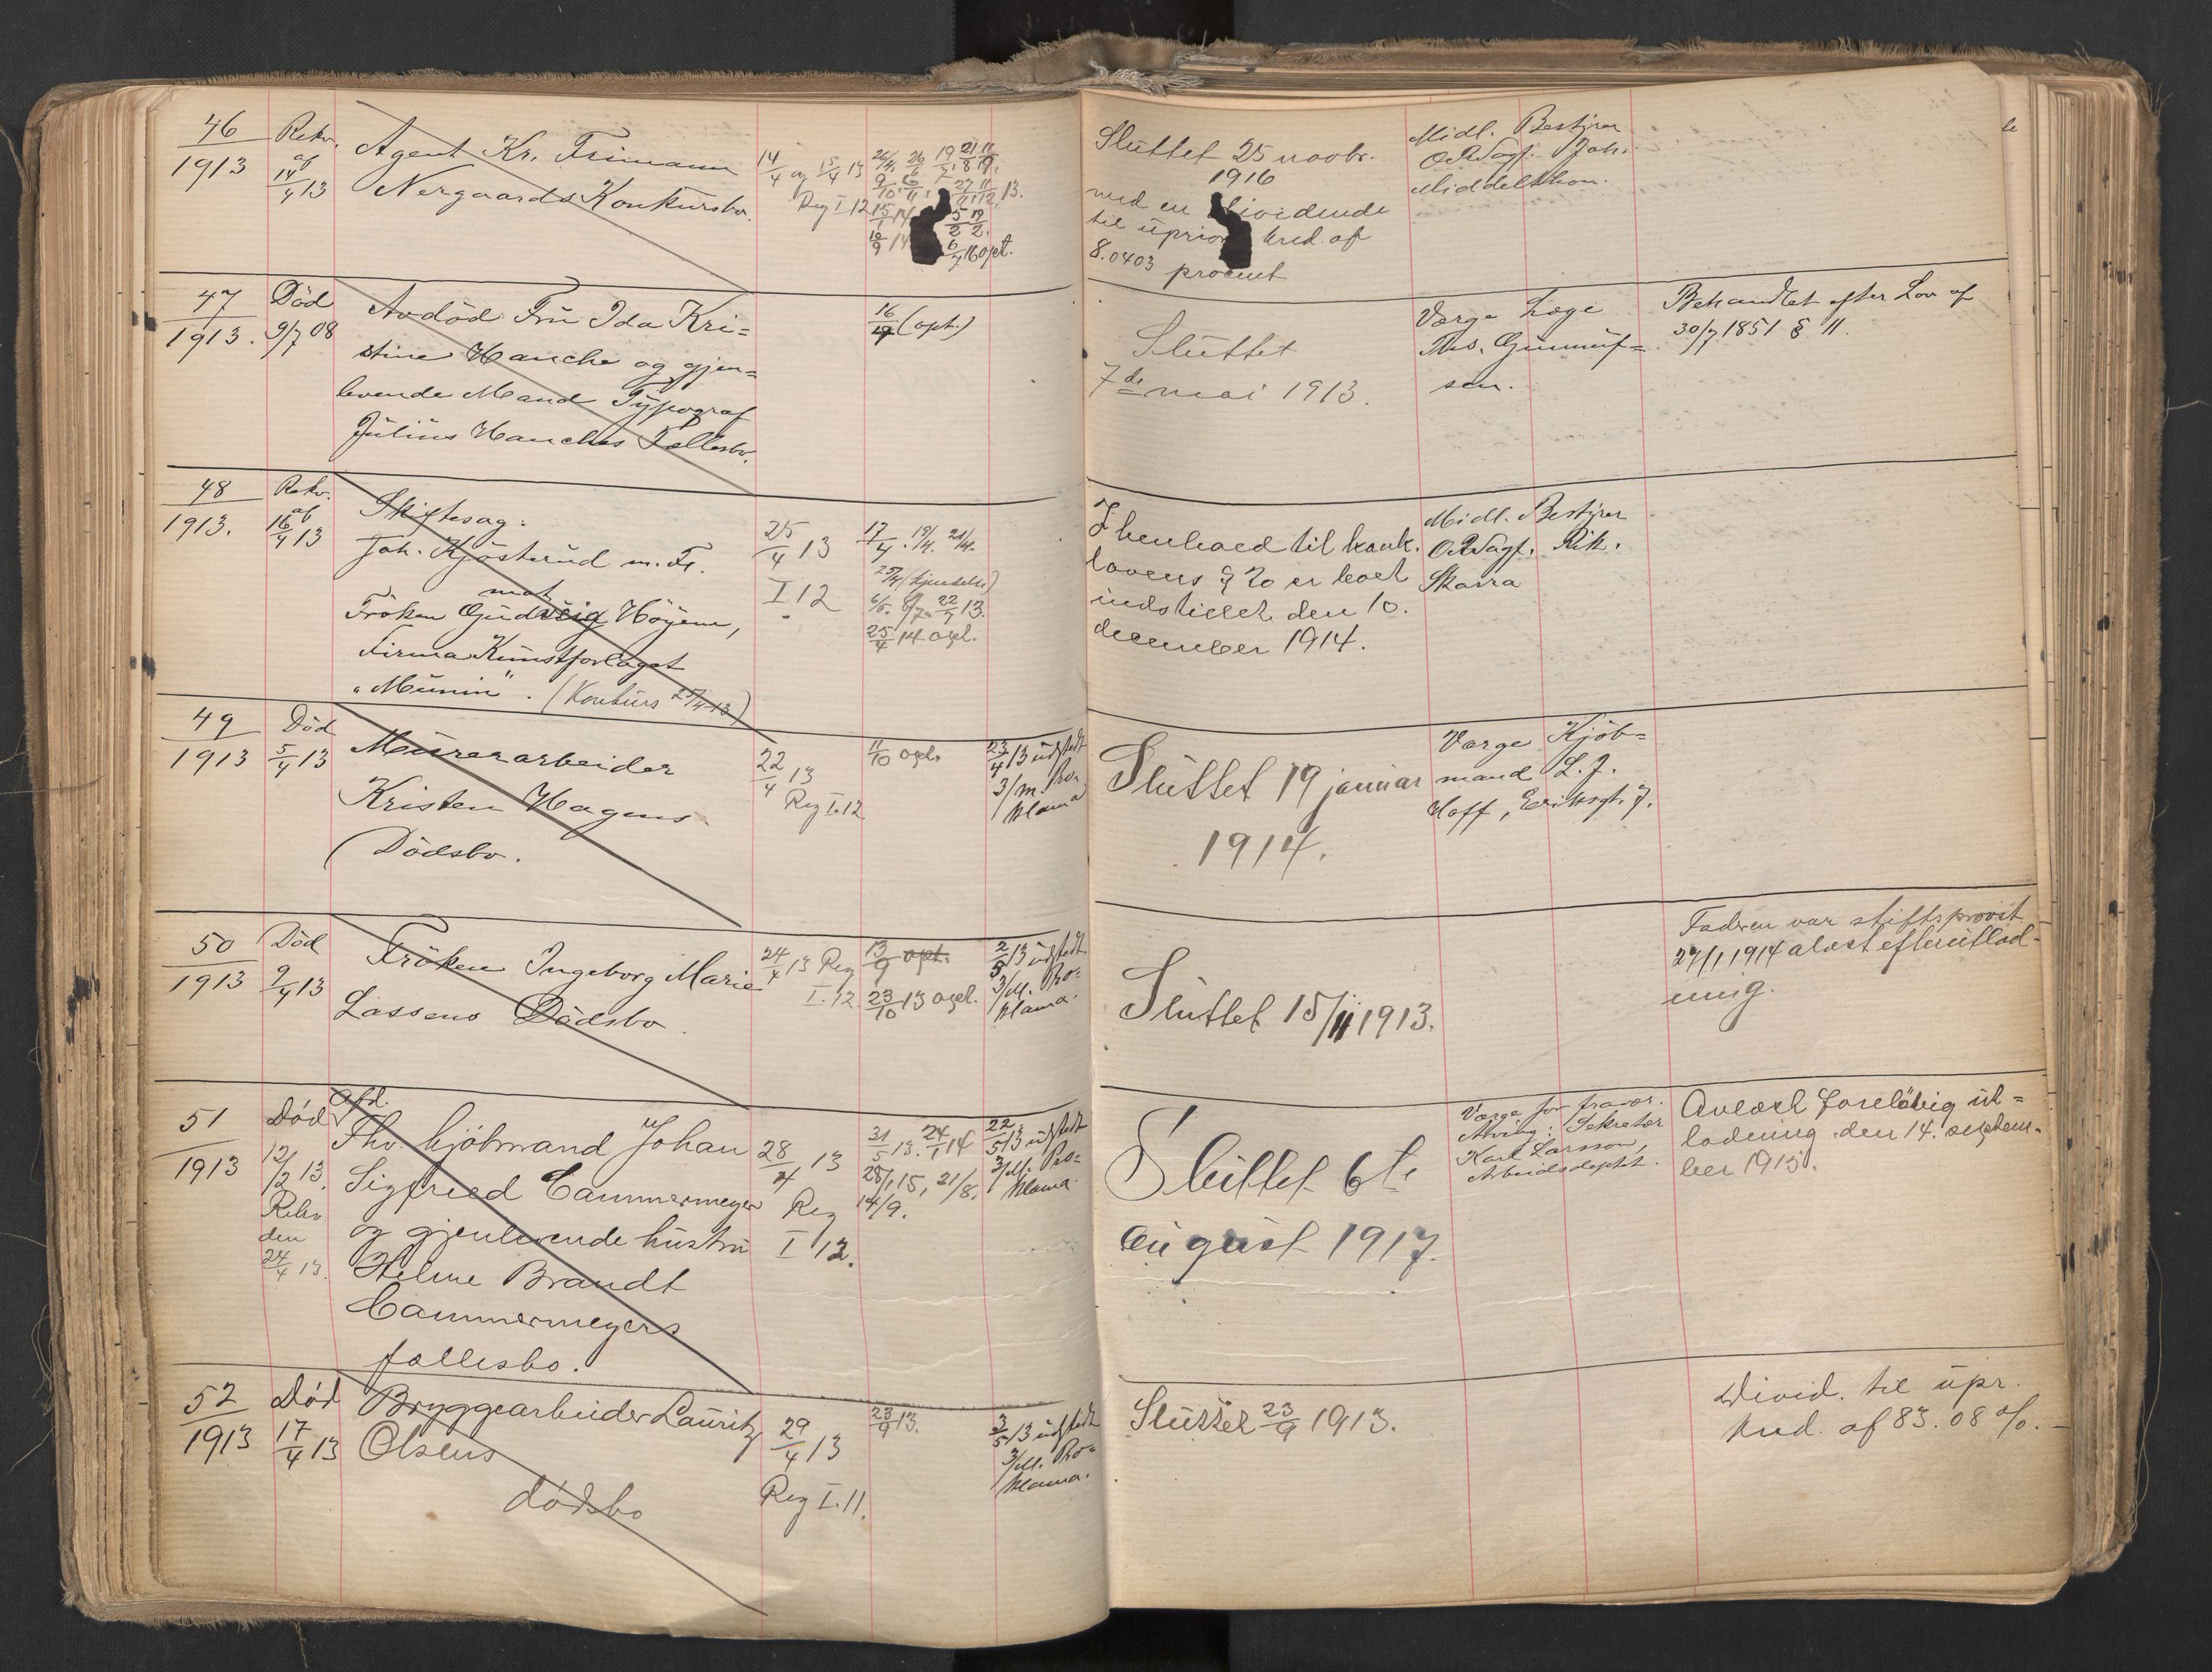 46 Rekv.
1913 af 14/4 13
Agent Kr. Frimann
Nergaards Konkursbo.
14/4 og 15/4 13
Reg I 12
6/7 16 opt.
Sluttet 25 novbr.
1916
med en dividende
til uprior kred. af
8.0403 procent
Midl. Bestyrer
O.R.Sagf. Joh.
Middelthon.
47 Död
1913. 9/7 08
Avdöd Fru Ida Kri=
stine Hanche og gjen=
levende Mand Typograf
Julius Hanches Fællesbo.
(opt.)
Sluttet
7de mai 1913.
Værge Læge
Ths. Gunnuf=
sen.
Behandlet efter Lov af
30/7 1851 § 11.
48 Rekv.
1913. af 16/4 13
Skiftesag:
Joh. Kjösterud m. Fl.
mot
Fröken Gudveig Höyem,
Firma Kunstforlaget
"Munin". (Konkurs 25/4 13)
25/4 13
I 12
17/4. 19/4. 21/4.
25/4 (kjendelse)
22/7 13.
25/4 14 opt.
I henhold til konk.
lovens § 20 er boet
indstillet den 10.
december 1914.
Midl. Bestyrer
O.R.Sagf. Rik.
Skarra
49 Död
1913 5/4 13
Murerarbeider
Kristen Hagens
Dödsbo.
22/4 13
Reg I.12
11/10 opt.
23/4 13 udstedt
3/m. Pro-
klama
Sluttet 19 januar
1914.
Værge Kjöb=
mand L. J.
Hoff, Eriksgt. 7.
50 Död
1913 9/4 13
Fröken Ingeborg Marie
Lassens Dödsbo
24/4 13 Reg
I. 12
13/9 opt.
23/10 13 opt.
2/5 13 udstedt
3/M. Pro=
klama.
Sluttet 15/11 1913.
Fadren var stiftsprovst
27/1 1914 avlæst efterutlod-
ning.
51 Död
1913 12/2 13.
Rekv.
den
24/4 13.
Afd.
Thv. kjöbmand Johan
Sigfried Cammermeyer
og gjenlevende hustru
Helme Brandt
Cammermeyers
fællesbo.
28/4 13
Reg
I 12.
31/5 13. 24/1 14
28/1 15, 21/8.
14/9.
22/5 13 udstedt
3/M. Pro=
klama.
Sluttet 6te
august 1917.
Værge for fravær.
Arving: Sekretær
Karl Larsson,
Arbeidsdeptet.
Avlæst foreløbig ut=
lodning den 14. septem-
ber 1915.
52 Död
1913 17/4 13
Bryggearbeider Lauritz
Olsens
dödsbo
29/4 13
Reg I. 11.
23/9 13.
3/5 13 udstedt
3/M. Pro=
klama.
Sluttet 23/9 1913.
Divid. til upr.
kred. af 83.08 %.